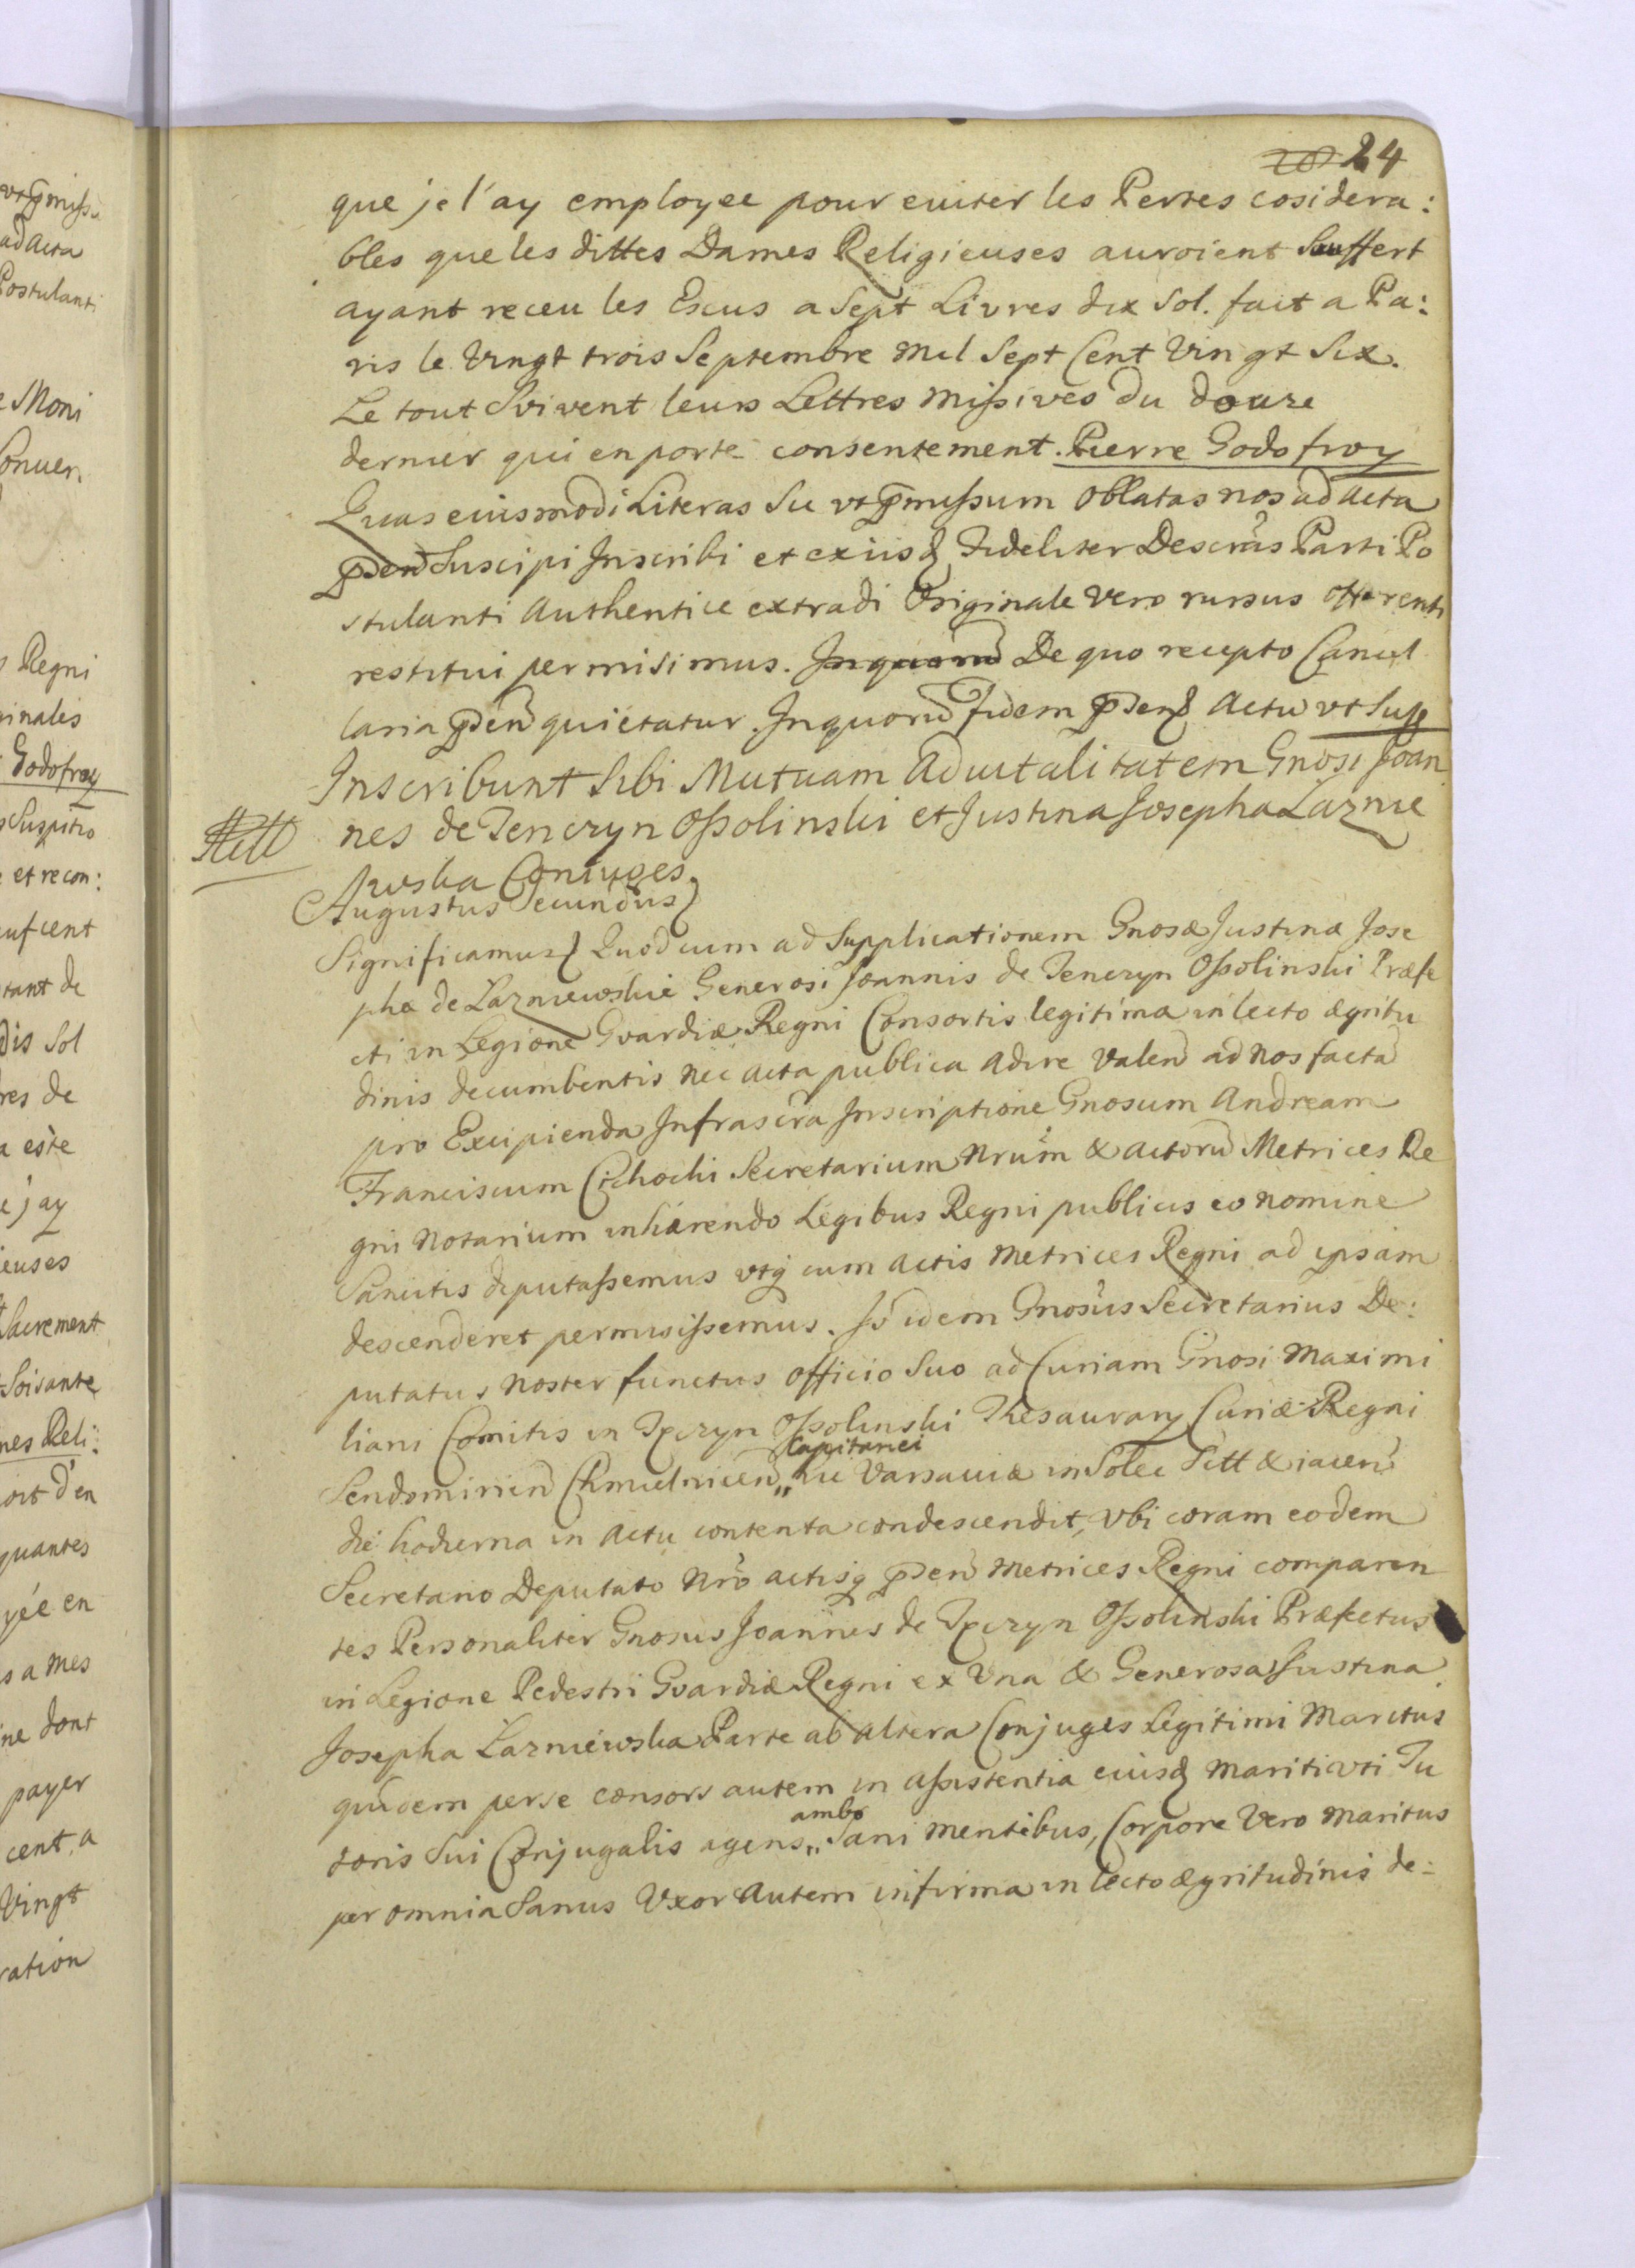 24
que je l'ay employee pour euiter les Pertes cosidera:
bles que les dittes Dames Religieuses auroient Souffert
ayant receu les Escus a Sept Livres dix Sol. fait a Pa:
ris le Vingt trois Septembre Mil Sept Cent Vingt Six.
Le tout Svivent leurs Lettres Missives du douze
dernier qui en porte consentement. Pierre Godofroy
Quas eiusmodi Literas Sic vt pmissum Oblatas nos ad Acta
pden Suscipi Inscribi et ex iisq Fideliter Descras Parti Po
stulanti Authentice extradi Originale Vero rursus Offerenti
restitui permisimus. Inquoru De quo recepto Cancel
laria pden quietatur. Inquoru Fidem pden Actu vt Sup
Inscribunt Sibi Mutuam Aduitalitatem Gnosi Joan
nes de Tenczyn Ossolinski et Justina Josepha Laznie
wska Coniuges.
Augustus Secundus
Significamus Quod cum ad Supplicationem Gnosæ Justinæ Jose
phæ de Lazniewskie Generosi Joannis de Tenczyn Ossolinski Præfe
cti in Legione Gvardiæ Regni Consortis legitimæ in lecto ægritu
dinis decumbentis nec acta publica adire Valen ad Nos facta
pro Excipienda Infrascra Inscriptione Gnosum Andream
Franciscum Cichocki Secretarium Nrum & Actoru Metrices Re
gni Notarium inhærendo Legibus Regni publicis eo nomine
Sancitis deputassemus vtq cum Actis Metrices Regni ad ipsam
descenderet permisissemus. Is idem Gnosus Secretarius De:
putatus Noster functus Officio Suo ad Curiam Gnosi Maximi
liani Comitis in Tęczyn Ossolinski Thesaurary Curiæ Regni
Sendomirien Chmielnicen „ Capitanei hic Varsauiæ in Solec Sitt & iacen
die hodierna in Actu contenta condescendit, Vbi coram eodem
Secretario Deputato Nro actisq pden Metrices Regni comparen
tes Personaliter Gnosus Joannes de Tęczyn Ossolinski Præfectus
in Legione Pedestri Gvardiæ Regni ex Vna & Generosa Justina
Josepha Lazniewska Parte ab altera Conjuges Legitimi Maritus
quidem per se consors autem in assistentia eiusq Mariti vti Tu
toris Sui Conjugalis agens „ ambo Sani Mentibus, Corpore Vero Maritus
per omnia Sanus Vxor Autem infirma in lecto ægritudinis de: